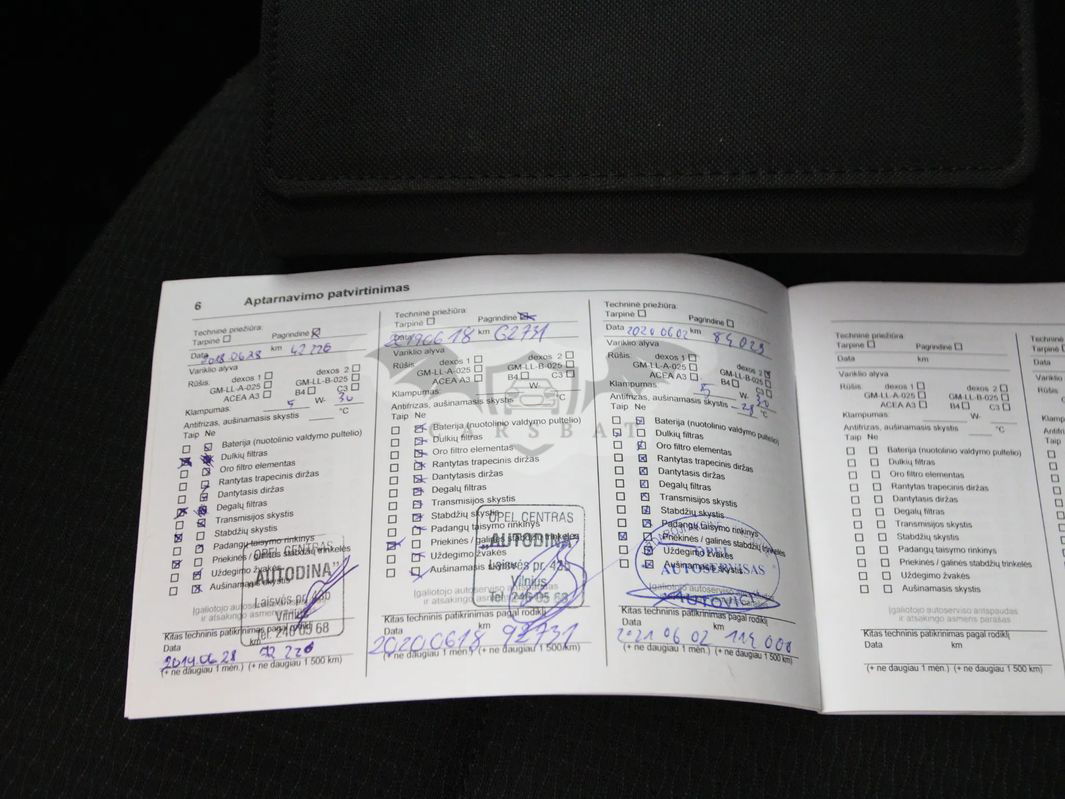 6 Aptarnavimo patvirtinimas
Techninė priežiūra:
Tarpinė Pagrindinė
Data 2018.06.28 km 42 226
Variklio alyva
Rūšis: dexos 1 dexos 2
GM-LL-A-025 GM-LL-B-025
ACEA A3 B4 C3
Klampumas: 5 W- 30
Antifrizas, aušinamasis skystis °C
Taip Ne
Baterija (nuotolinio valdymo pultelio)
Dulkių filtras
Oro filtro elementas
Rantytas trapecinis diržas
Dantytasis diržas
Degalų filtras
Transmisijos skystis
Stabdžių skystis
Padangų taisymo rinkinys
Priekinės / galinės stabdžių trinkelės
Uždegimo žvakės
Aušinamasis skystis
OPEL CENTRAS
„AUTODINA”
Laisvės pr.
Vilnius
Tel. 246 05 68
Įgaliotojo autoserviso
ir atsakingo asmens
Kitas techninis patikrinimas pagal rodiklį
Data km
2019.06.28 72 226
(+ ne daugiau 1 mėn.) (+ ne daugiau 1 500 km)
Techninė priežiūra:
Tarpinė Pagrindinė
Data 2019 06 18 km 62731
Variklio alyva
Rūšis: dexos 1 dexos 2
GM-LL-A-025 GM-LL-B-025
ACEA A3 B4 C3
Klampumas: W-
Antifrizas, aušinamasis skystis °C
Taip Ne
Baterija (nuotolinio valdymo pultelio)
Dulkių filtras
Oro filtro elementas
Rantytas trapecinis diržas
Dantytasis diržas
Degalų filtras
Transmisijos skystis
Stabdžių skystis
Padangų taisymo rinkinys
Priekinės / galinės stabdžių trinkelės
Uždegimo žvakės
Aušinamasis skystis
OPEL CENTRAS
„AUTODINA”
Laisvės pr.
Vilnius
Tel. 246 05 68
Įgaliotojo autoserviso
ir atsakingo asmens
Kitas techninis patikrinimas pagal rodiklį
Data km
2020.06 18 92731
(+ ne daugiau 1 mėn.) (+ ne daugiau 1 500 km)
Techninė priežiūra:
Tarpinė Pagrindinė
Data 2020 06 02 km 84 023
Variklio alyva
Rūšis: dexos 1 dexos 2
GM-LL-A-025 GM-LL-B-025
ACEA A3 B4 C3
Klampumas: 5 W- 30
Antifrizas, aušinamasis skystis -28 °C
Taip Ne
Baterija (nuotolinio valdymo pultelio)
Dulkių filtras
Oro filtro elementas
Rantytas trapecinis diržas
Dantytasis diržas
Degalų filtras
Transmisijos skystis
Stabdžių skystis
Padangų taisymo rinkinys
Priekinės / galinės stabdžių trinkelės
Uždegimo žvakės
Aušinamasis skystis
OPEL
AUTOSERVISAS
Įgaliotojo autoserviso
ir atsakingo asmens
Kitas techninis patikrinimas pagal rodiklį
Data km
2021 06 02 114 000
(+ ne daugiau 1 mėn.) (+ ne daugiau 1 500 km)
Techninė priežiūra:
Tarpinė Pagrindinė
Data km
Variklio alyva
Rūšis: dexos 1 dexos 2
GM-LL-A-025 GM-LL-B-025
ACEA A3 B4 C3
Klampumas: W-
Antifrizas, aušinamasis skystis °C
Taip Ne
Baterija (nuotolinio valdymo pultelio)
Dulkių filtras
Oro filtro elementas
Rantytas trapecinis diržas
Dantytasis diržas
Degalų filtras
Transmisijos skystis
Stabdžių skystis
Padangų taisymo rinkinys
Priekinės / galinės stabdžių trinkelės
Uždegimo žvakės
Aušinamasis skystis
Įgaliotojo autoserviso antspaudas
ir atsakingo asmens parašas
Kitas techninis patikrinimas pagal rodiklį
Data km
(+ ne daugiau 1 mėn.) (+ ne daugiau 1 500 km)
CARSBAT